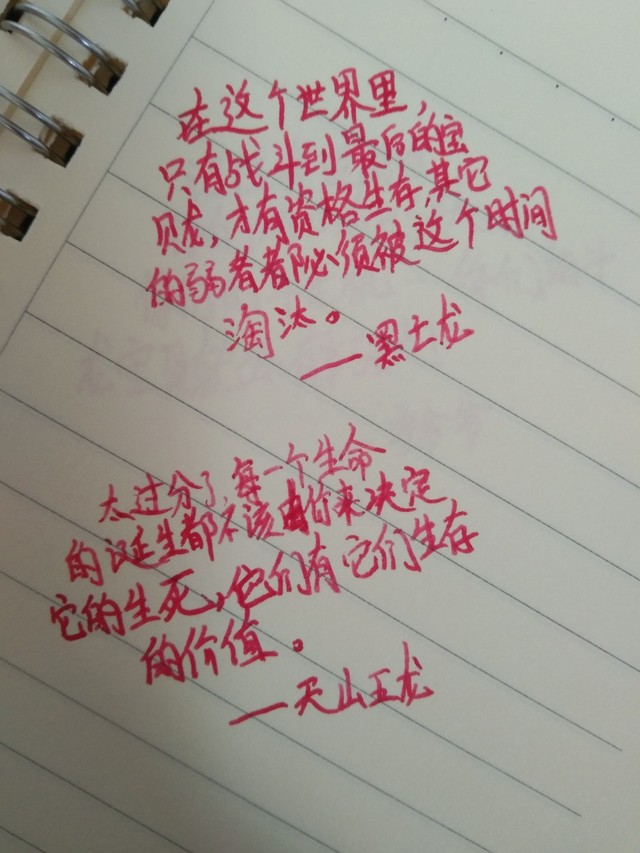 在这个世界里,
只有战斗到最后的宝
贝龙,才有资格生存,其它
的弱者都必须被这个时间
淘汰。
——黑土龙
太过分了,每一个生命
的诞生都不该由你来决定
它的生死,它们有它们生存
的价值。
——天山五龙